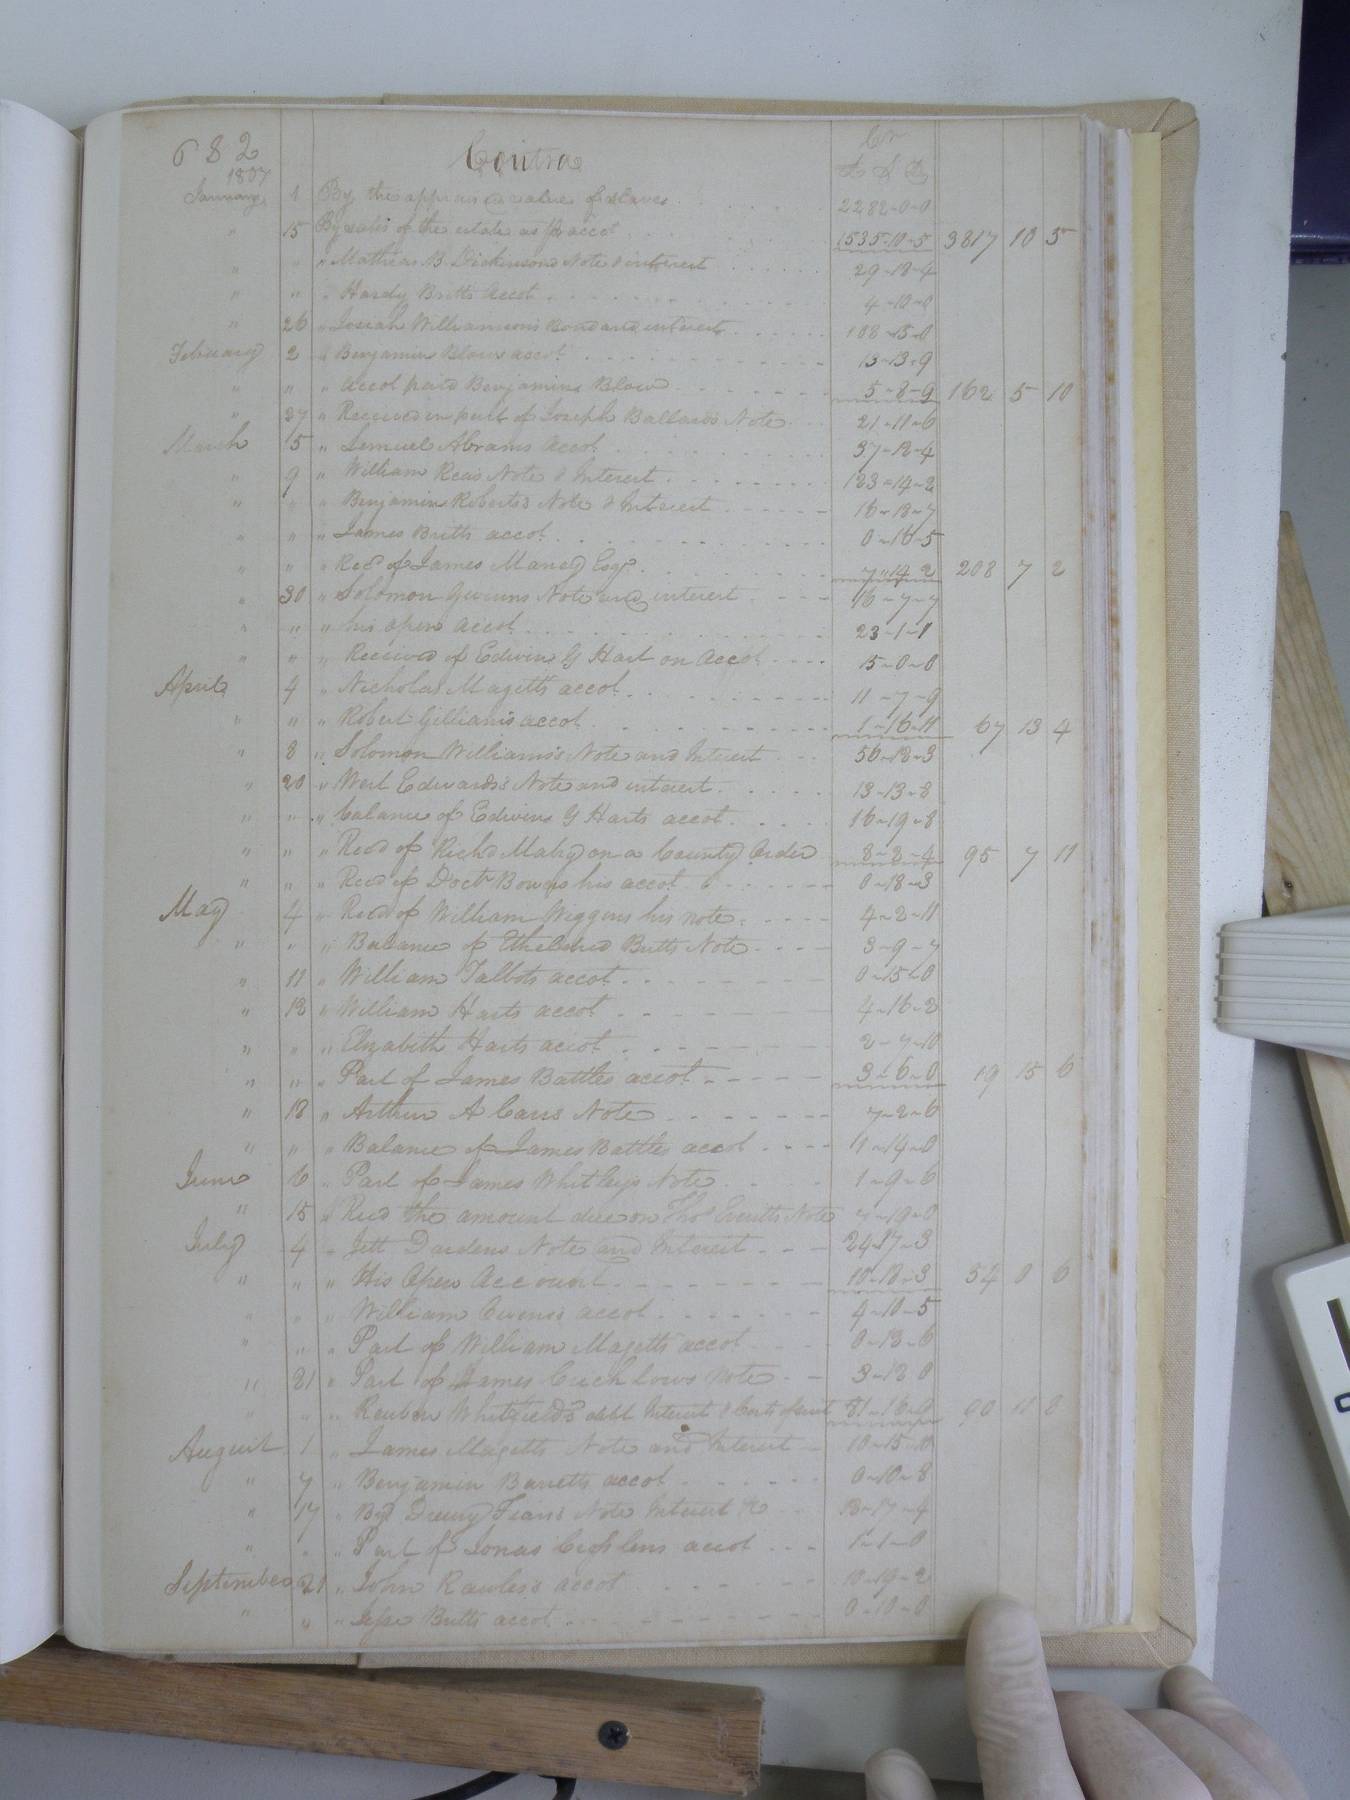 682 Contra Cr
1807 £ S D
January 1 By the apprais'd value of slaves 2282-0-0
" 15 By sales of the estate as pr accot 1535-10-5 3817 10 5
" " " Mathias B Dickinsons Note & interest 29-18-4
" " " Hardy Britts accot 4-10-0
" 26 " Josiah Williamson's Bond and interest 108-15-0
February 2 " Benjamin Blows accot 13-13-9
" " " accot paid Benjamin Blow 5-8-9 162 5 10
" 27 " Received in part of Joseph Ballards Note 21-11-6
March 5 " Lemuel Abrams accot 37-12-4
" 9 " William Reas Note & Interest 123-14-2
" " " Benjamin Roberts's Note & Interest 16-18-7
" " " James Britts accot 0-16-5
" " " Recd of James Maney Esqr 7-14-2 208 7 2
" 30 " Solomon Note and interest 16-7-7
" " " his open accot 23-1-1
" " " Received of Edwin G Hart on accot 15-0-0
April 4 " Nicholas Magetts accot 11-7-9
" " " Robert Gilliam's accot 1-16-11 67 13 4
" 8 " Solomon Williams's Note and Interest 56-18-3
" 20 " West Edwards's Note and interest 13-13-8
" " " balance of Edwin G Harts accot 16-19-8
" " " Recd of Richd Mabry on a County Order 8-3-4 95 7 11
" " " Recd of Doctr Bowers his accot 0-18-3
May 4 " Recd of William Wiggins his note 4-2-11
" " " Balance of Etheldred Britts Note 3-9-7
" 11 " William Talbots accot 0-15-0
" 12 " William Harts accot 4-16-2
" " " Elizabeth Harts accot 2-7-10
" " " Part of James Battles accot 3-6-0 19 15 6
" 18 " Arthur A Carrs Note 7-2-6
" " " Balance of James Battles accot 1-14-0
June 6 " Part of James Whitleys Note 1-9-6
" 15 " Recd the amount due on Thos Everitts Note
July 4 " Jett Dardens Note and Interest 24-17-3
" " " His Open Account 10-18-3 54 0 6
" " " William accot 4-10-5
" " " Part of William Magetts accot 0-13-6
" 21 " Part of James Crichlows note 3-12-0
" " " Reuben Whitfield's debt Interest & Costs of suit 81-16-9 90 11 8
August 1 " James Magetts Note and Interest 10-15-0
" 7 " Benjamin Barretts accot 0-10-8
" 17 " By Drewry Note Interest &c 18-17-4
" " " Part of Jonas accot 1-1-0
September 21 " John Rawles's accot 10-19-2
" " " Jesse Britts accot 0-10-0